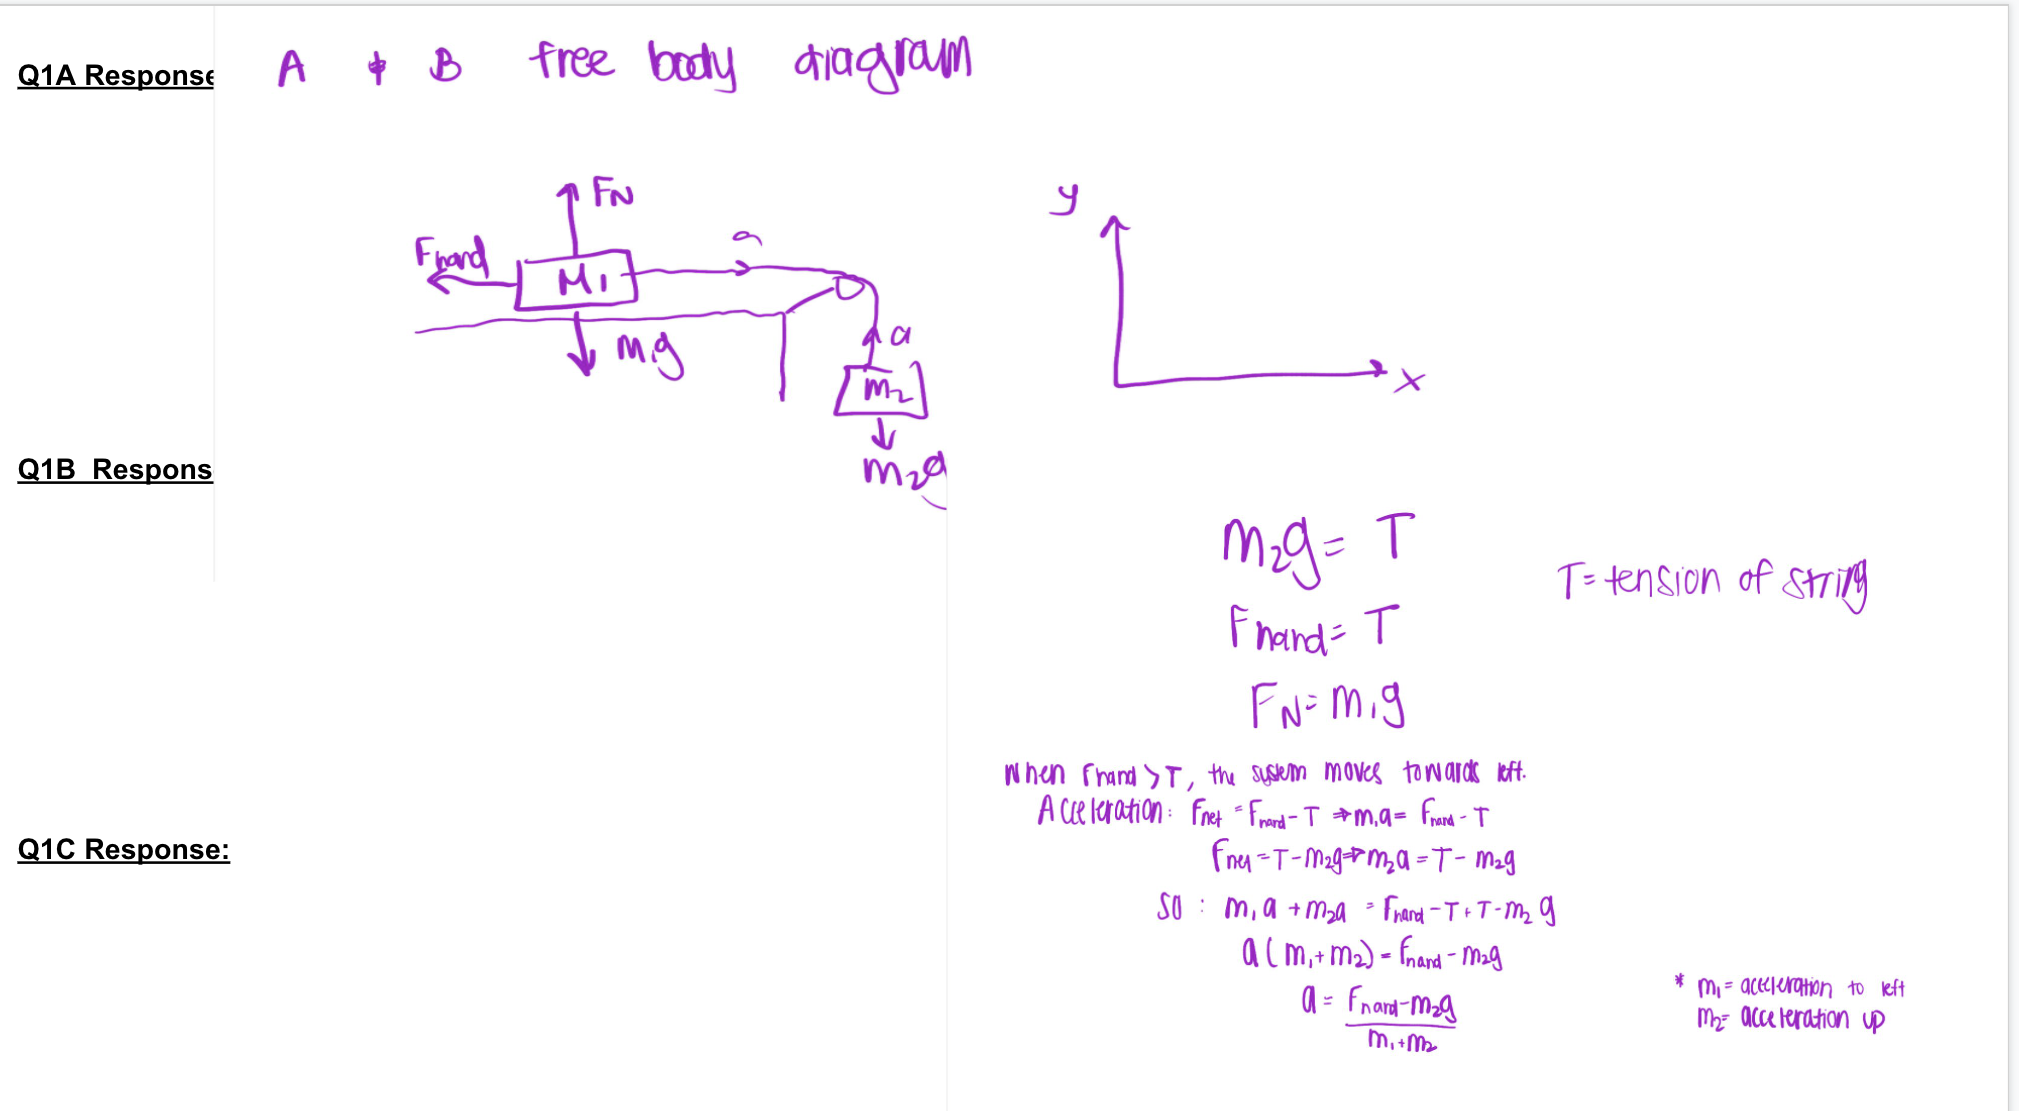 Q1A Response
A & B free body diagram
FN
Fhand
M1
a
m1g
a
m2
m2g
y
x
Q1B Respons
m2g = T
T = tension of string
Fhand = T
FN = m1g
When Fhand > T, the system moves towards left.
Acceleration: Fnet = Fhand - T → m1a = Fhand - T
Fnet = T - m2g → m2a = T - m2g
Q1C Response:
so : m1a + m2a = Fhand - T + T - m2g
a(m1 + m2) = Fhand - m2g
a = Fhand - m2g
m1 + m2
* m1 = acceleration to left
m2 = acceleration up